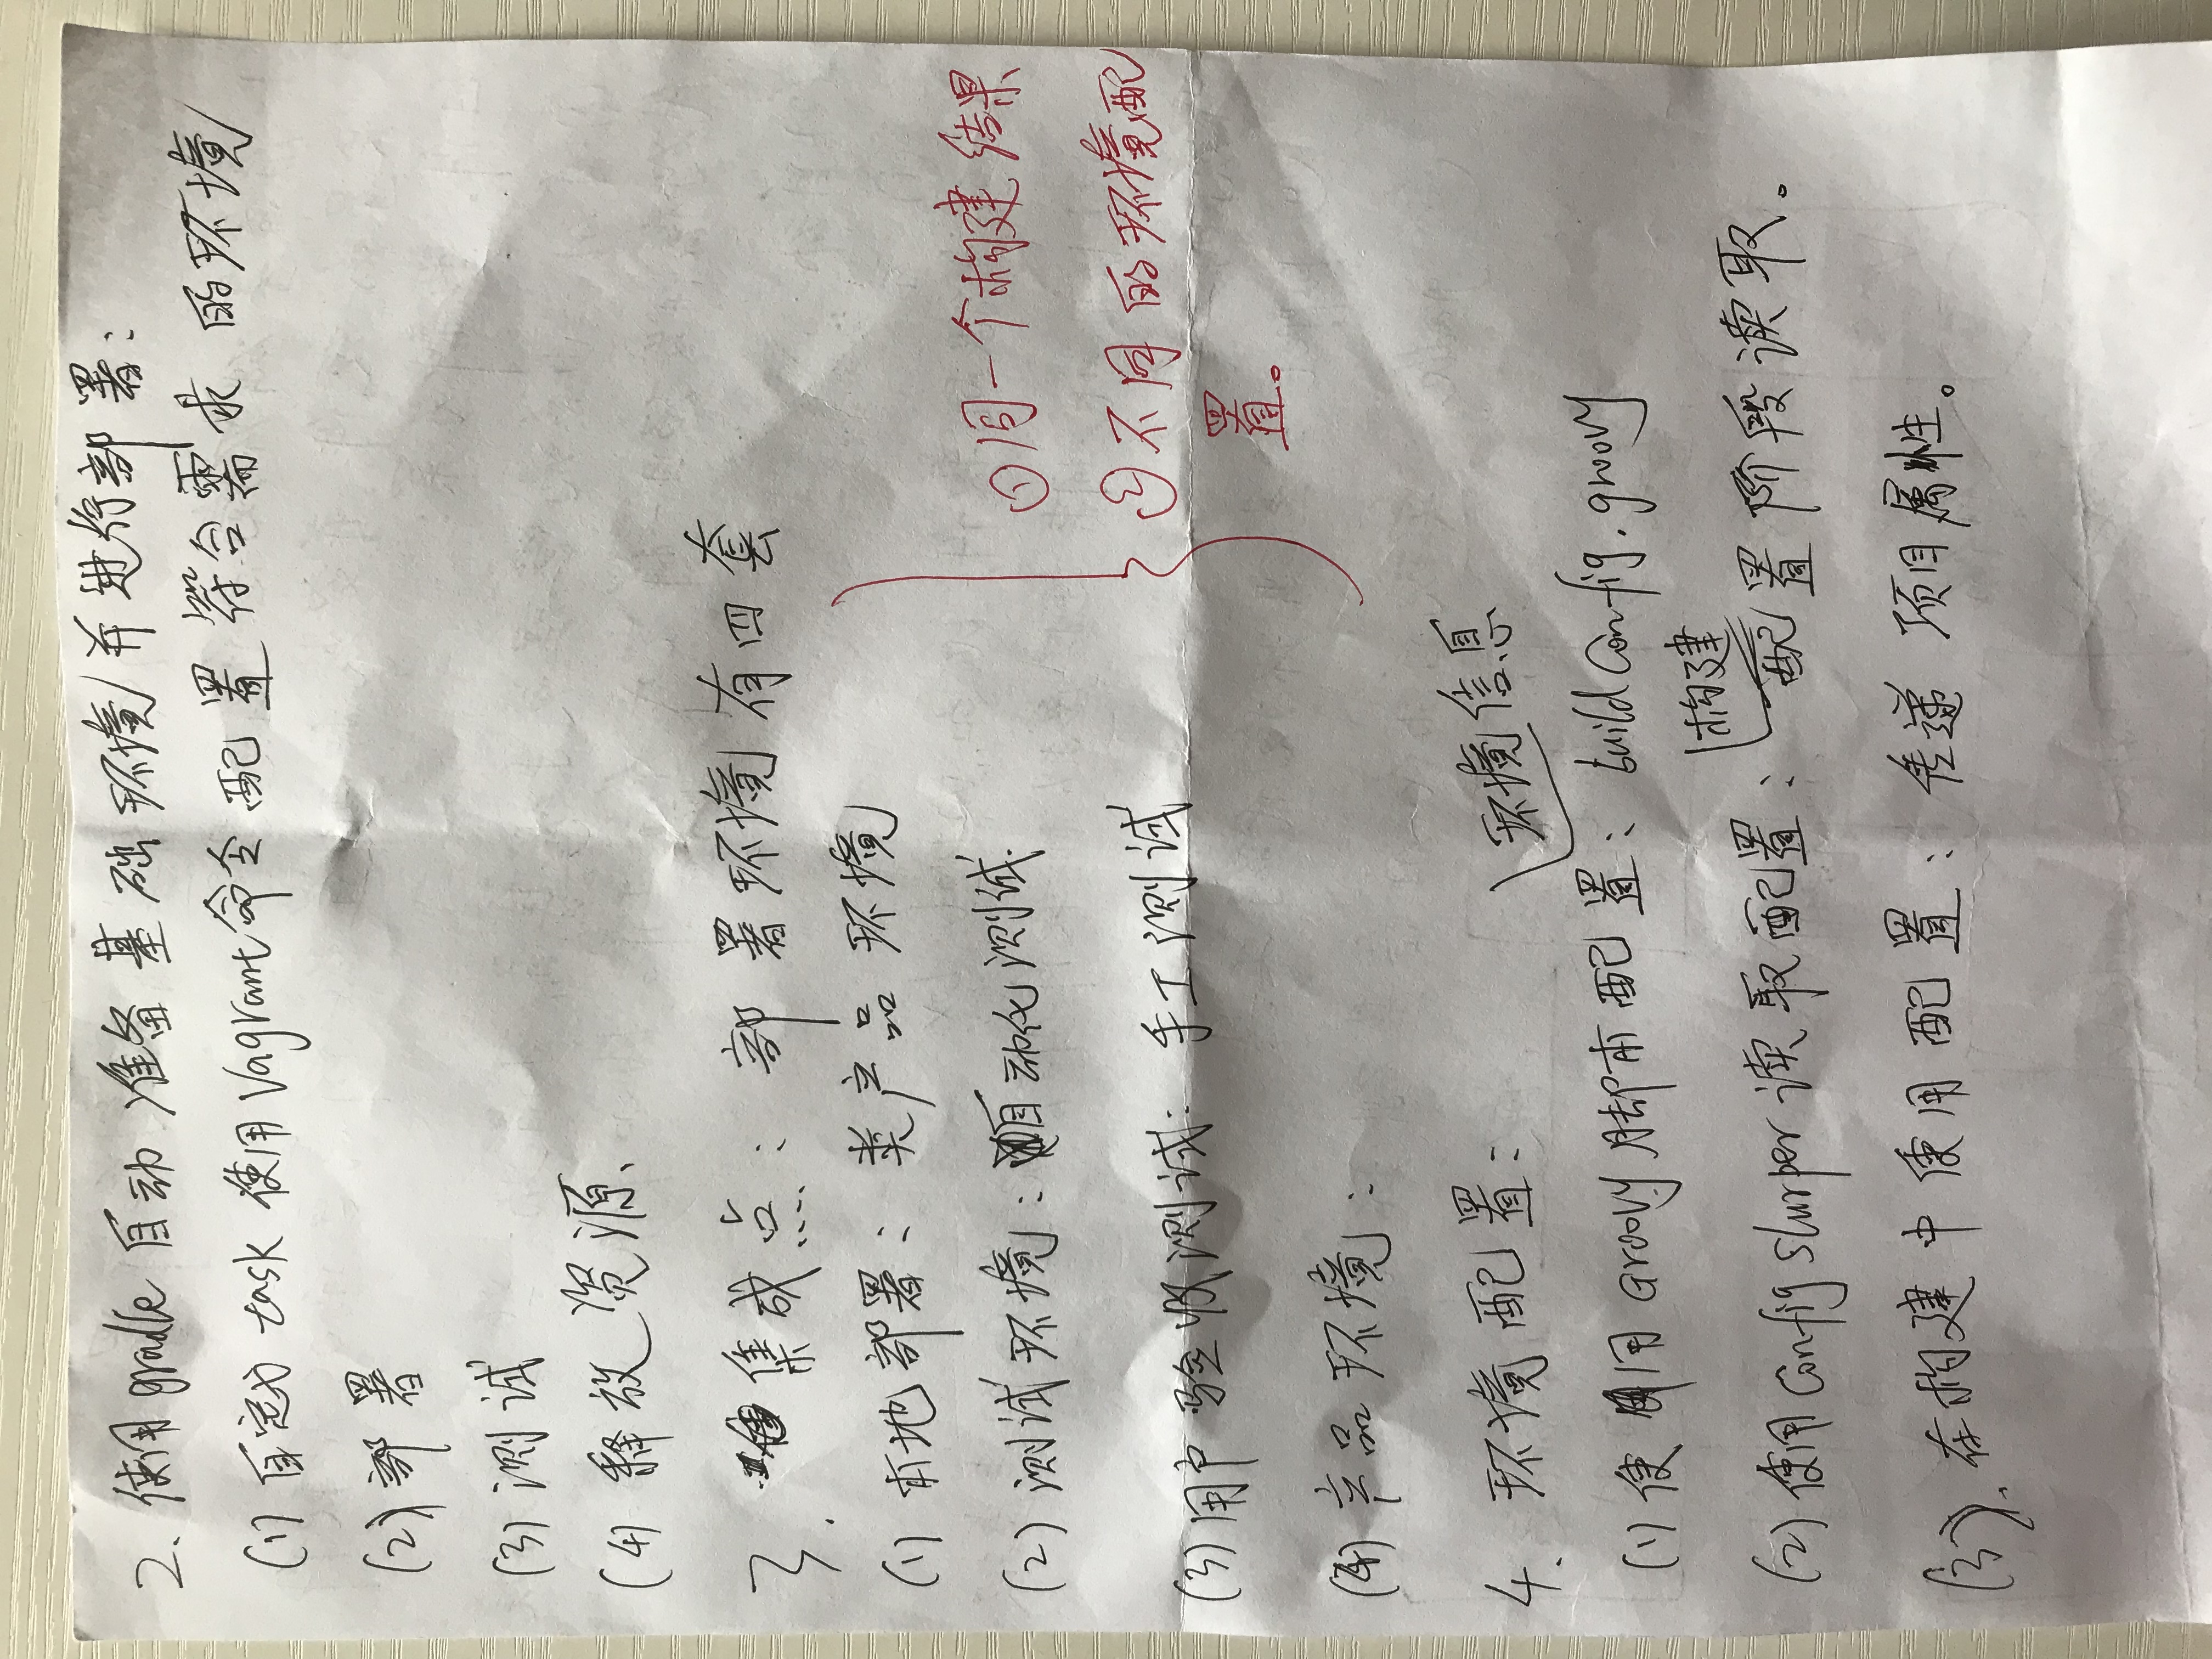 2. 使用gradle 自动准备基础环境并进行部署：
(1) 自定义 task 使用Vagrant命令配置符合需求的环境
(2) 部署
(3) 测试
(4) 释放资源、
3. 集成点：部署环境有四套
(1) 本地部署：类产品环境
(2) 测试环境：自动化测试
(3) 用户验收测试：手工测试
(4) 产品环境：
①同一个构建结果
②不同的环境配
置。
4. 环境配置：
环境信息
(1) 使用Groovy脚本配置：buildConfig.groovy
构建
(2) 使用ConfigSlurper读取配置：配置阶段读取。
(3)、在构建中使用配置：传递项目属性。